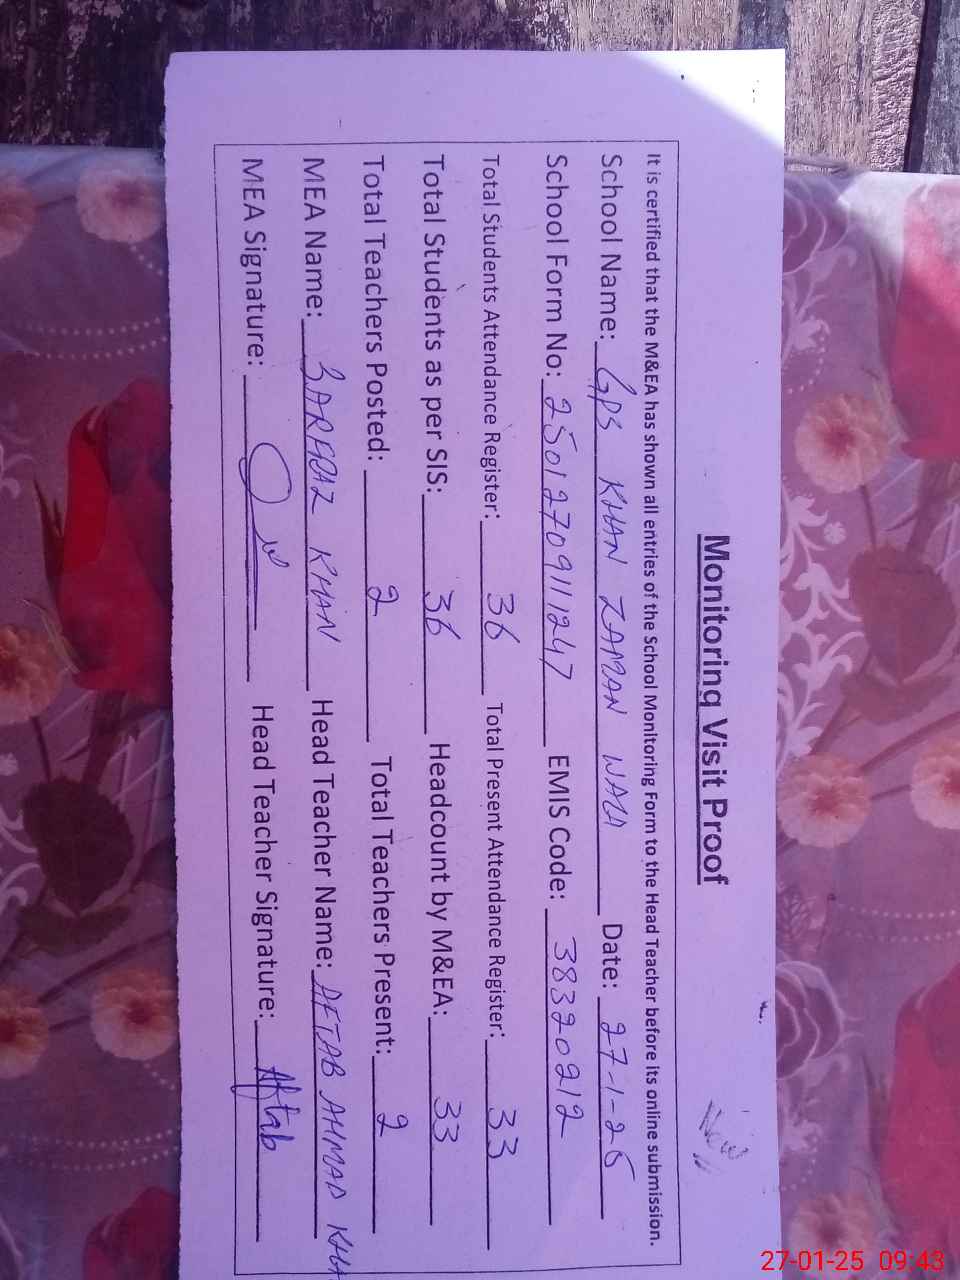 Monitoring Visit Proof
New
It is certified that the M&EA has shown all entries of the School Monitoring Form to the Head Teacher before its online submission.
School Name: GPS KHAN ZAMAN WALA Date: 27-1-25
School Form No: 25012709111247 EMIS Code: 38320212
Total Students Attendance Register: 36 Total Present Attendance Register: 33
Total Students as per SIS: 36 Headcount by M&EA: 33
Total Teachers Posted: 2 Total Teachers Present: 2
MEA Name: SARFRAZ KHAN Head Teacher Name: AFTAB AHMAD KHA
MEA Signature: Head Teacher Signature: Aftab
27-01-25 09:43